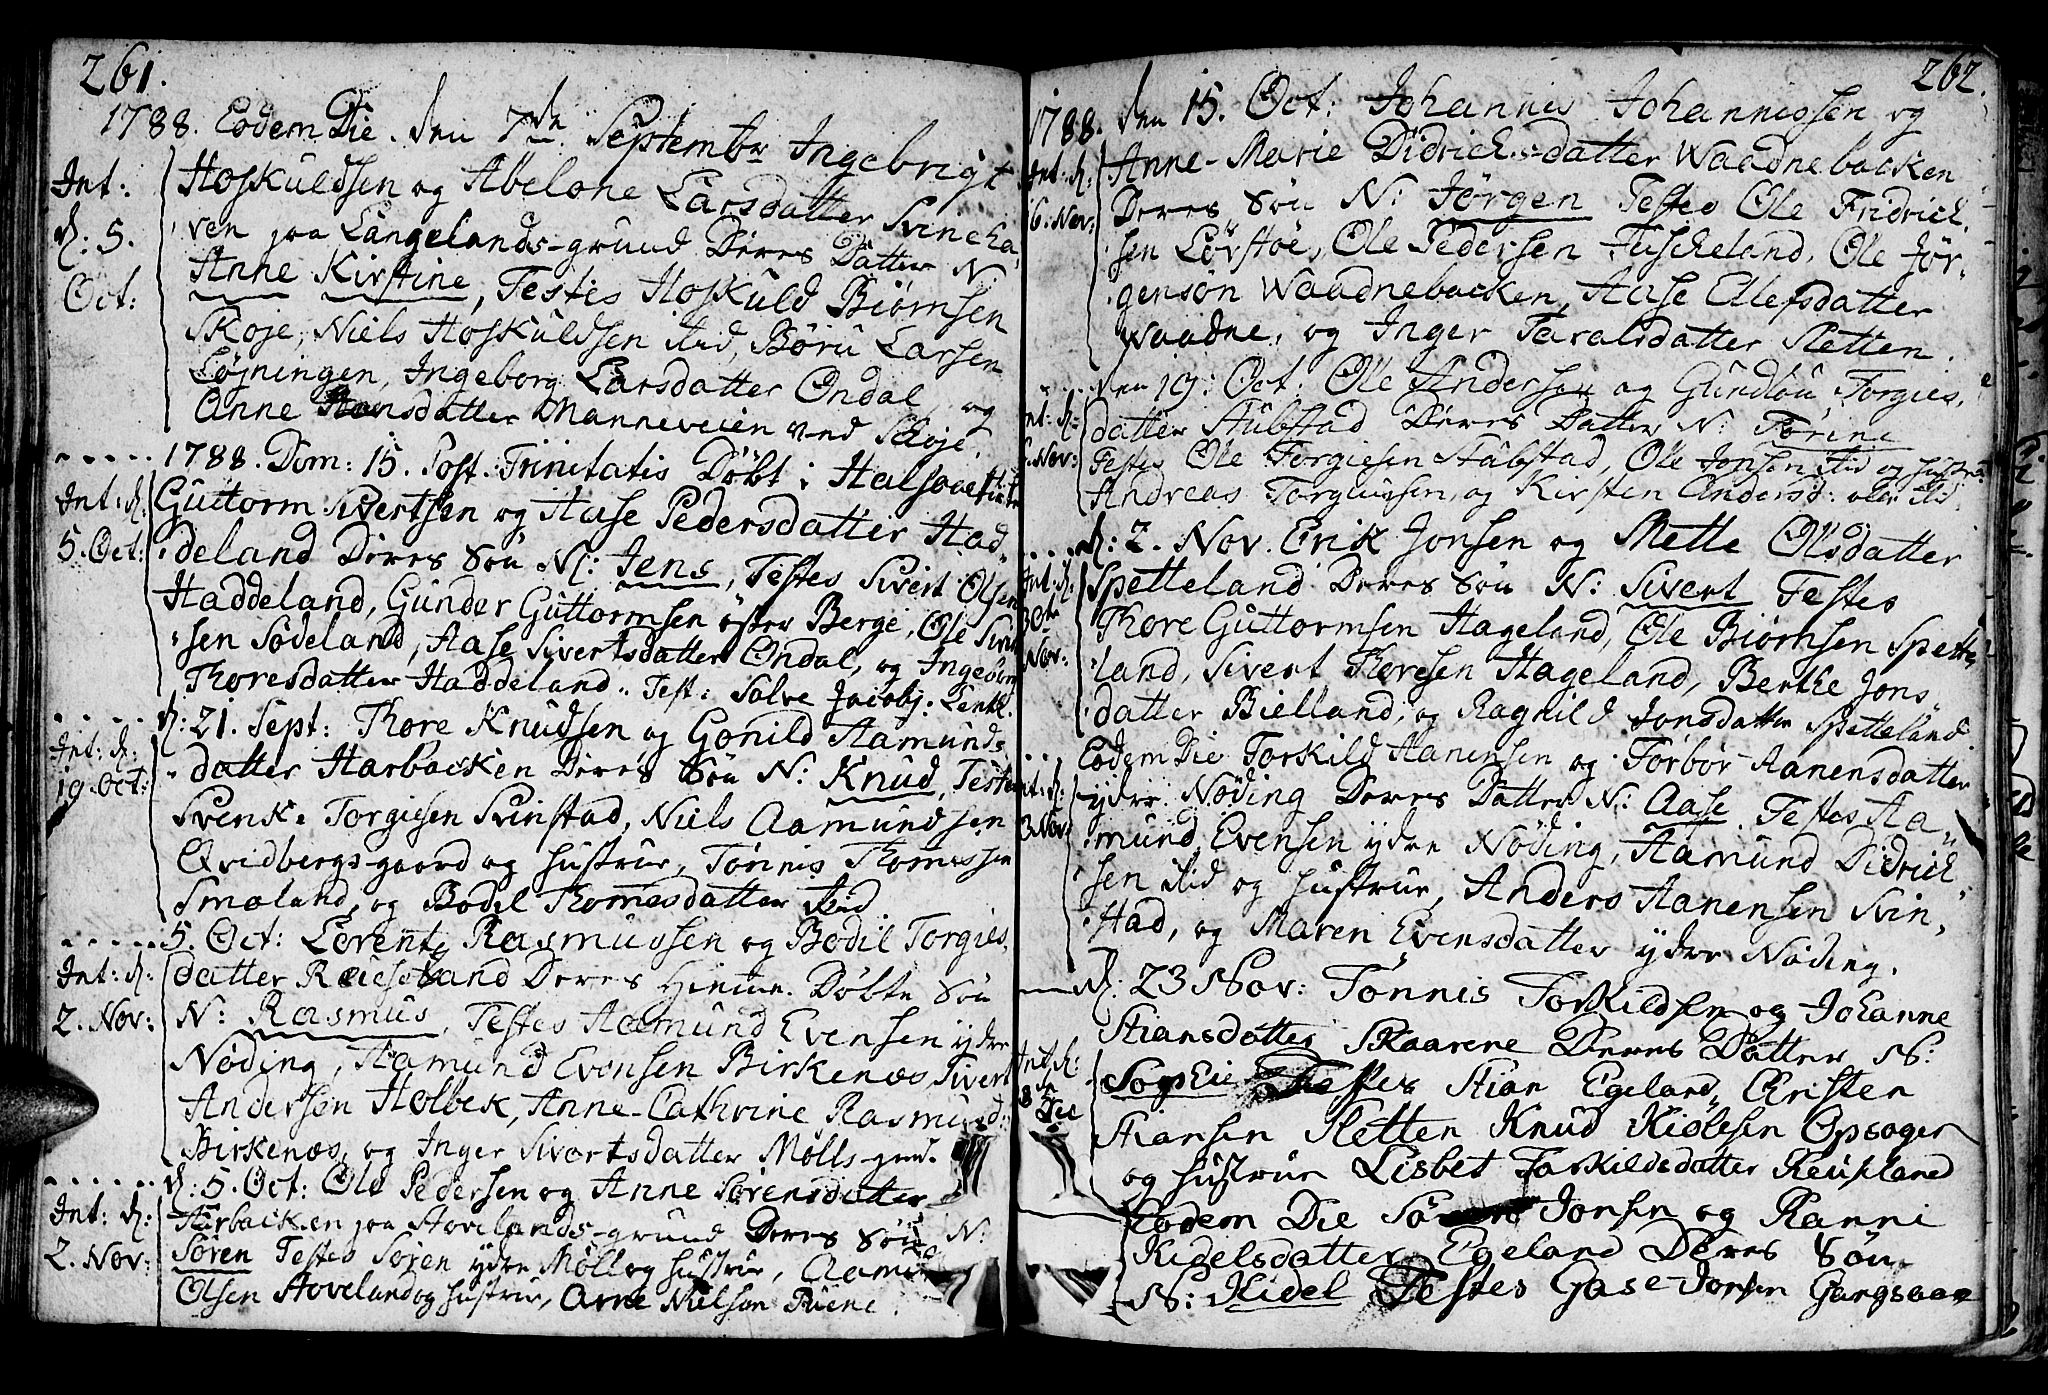 261.
1788. Eodem Die. den 7de Septembr Ingebrigt
Int:
Hoskuldsen og Abelone Larsdatter Svineha,
d: 5.
ven paa Langelands-grund Deres Datter N
Oct:
Anne Kirstine, Testes Hoskuld Biørnsen
Skoje, Niels Hoskuldsen ibid, Børu Larsen
Løjningen, Ingeborg Larsdatter Ondal, og
Anne Hansdatter Manneveien ved Skoje.
1788. Dom: 15. Post. Trinitatis Døbt i Halsaae
Int: d:
Guttorm Sivertsen og Aase Pedersdatter Had,
5. Oct:
deland Deres Søn N: Jens, Testes Sivert Olsen
Haddeland, Gunder Guttormsen øster Berge, Ole
sen Sødeland, Aase Sivertsdatter Ondal, og
Thoresdatter Haddeland. Test: Salve Jacobs:
d: 21. Sept: Thore Knudsen og Gonild Aamunds,
Int: d:
datter Harbacken Deres Søn N: Knud, Testes
19. Oct:
Svenke Torgiesen Svinstad, Niels Aamundsen
Qvidbergs-gaard og hustrue, Tønnis Thomessen
Smaland, og Bodel Thomesdatter ibid
5. Oct: Lorentz Rasmussen og Bodil Torgies,
Int: d:
datter Reieseland Deres Hjemme Døbte Søn
2. Nov:
N: Rasmus, Testes Aamund Evensen ydre
Nøding, Aamund Evensen Birkenæs, Sivert
Andersen Holbek, Anne-Cathrine Rasmusd:
Birkenæs, og Inger Sivertsdatter Mølls-grud.
d: 5. Oct: Ole Pedersen og Anne Sørensdatter
Int: d:
Aurbacken paa Hovelands-grund Deres Søn N:
2. Nov:
Søren Testes Søren ydre Møll og hustrue, Aamund
Olsen Hoveland og hustrue, Arne Nielsen Tuene.
262.
1788. den 15. Oct: Johannis Johannissen og
Int: d:
Anne-Marie Didrichsdatter Waadnebacken
16. Nov:
Deres Søn N: Jørgen Testes Ole Fridrich,
sen Lørstøe, Ole Pedersen Fuscheland, Ole Jør,
gensøn Waadnebacken, Aase Ellefsdatter
Waadne, og Inger Taralsdatter Sletten.
den 19: Oct: Ole Andersen og Gundlou Torgies,
Int: d:
datter Stubstad Deres Datter N: Torine
Nov:
Testes Ole Torgiesen Stubstad, Ole Jonsen ibid og hustrue
Andreas, og Kirsten Andersd: ibid
d: 2. Nov. Erik Jonsen og Mette Olsdatter
Int: d:
Spetteland Deres Søn N: Sivert Testes
Thore Guttormsen Hageland, Ole Biørnsen Spette,
Nov:
land, Sivert Thoresen Hageland, Berthe Jons,
datter Bielland, og Ragnild Jonsdatter Spetteland
Eodem Die Torkild Aanensen og Torbor Aanensdatter
Int: d:
ydre Nøding Deres Datter N: Aase. Testes Aa,
Nov:
mund Evensen ydre Nøding, Aamund Didrich,
sen ibid og hustrue, Anders Aanensen Svin,
stad, og Maren Evensdatter ydre Nøding.
d: 23 Nov: Tønnis Torkildsen og Johanne
Stiansdatter Skaarene Deres Datter N:
Int: d:
Sophie Testes Stian Egeland, Christen
8 Dec
Stiansen Sletten Knud Kiølesen Opsager
og hustrue Lisbet Torkildsdatter Reusland
Eodem Die Søren Jonsen og Ranni
Kidelsdatter Egeland Deres Søn
N: Kidel Testes Gase-Jonsen